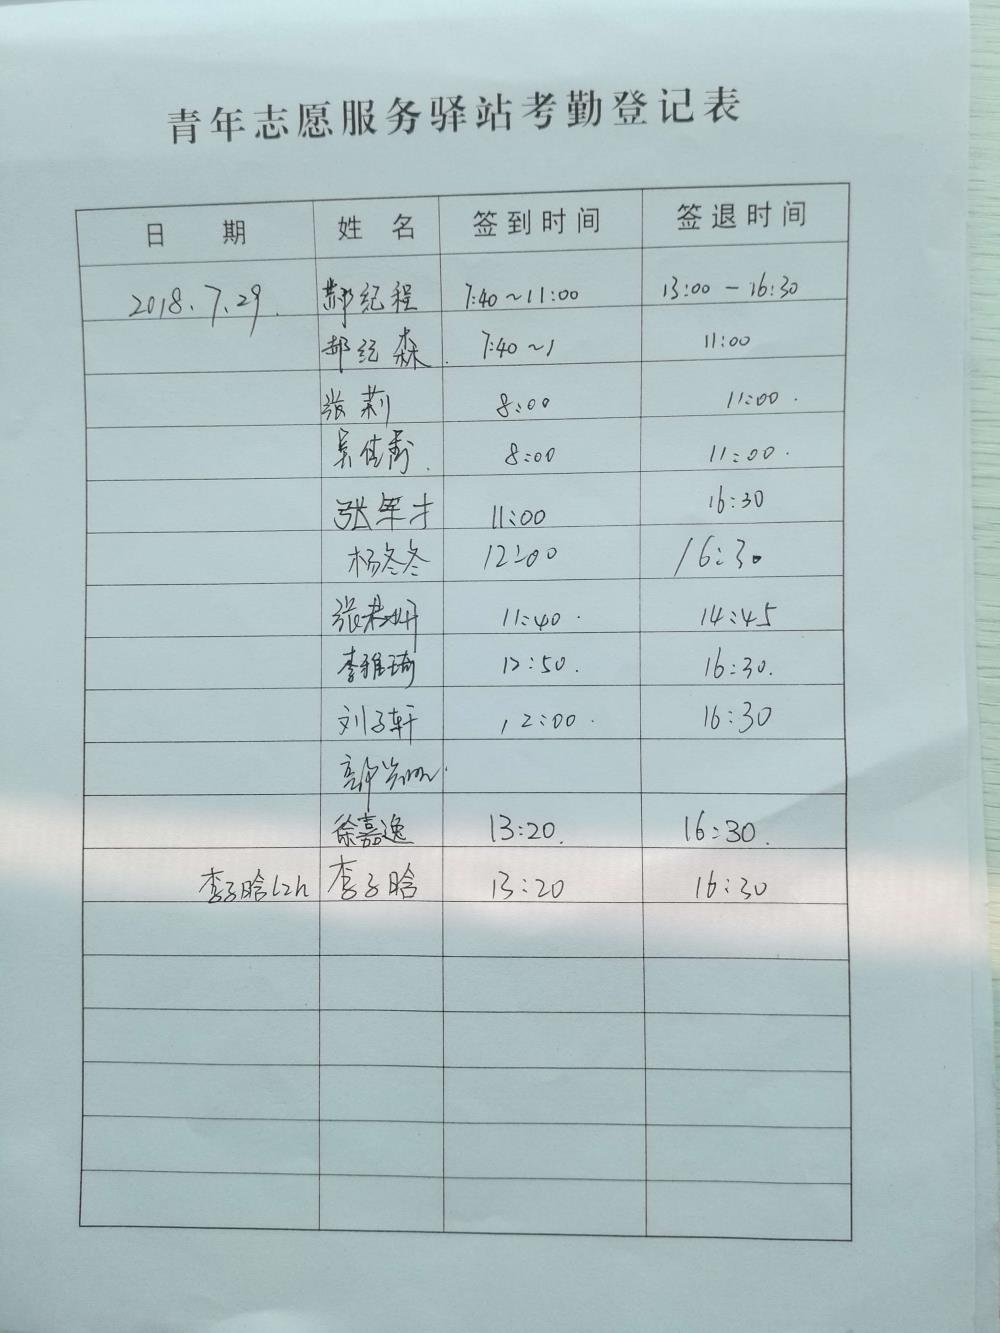 青年志愿服务驿站考勤登记表
日 期 姓 名 签到时间 签退时间
2018.7.29. 郝纪程 7:40~11:00 13:00-16:30
郝纪森. 7:40~1 11:00
张莉 8:00 11:00.
吴佳 8:00 11:00.
张军才 11:00 16:30
杨冬冬 12:00 16:30
张 妍 11:40. 14:45
李雅琦 12:50. 16:30.
刘子轩 12:00. 16:30
徐嘉逸 13:20. 16:30.
李子晗12h 李子晗 13:20 16:30